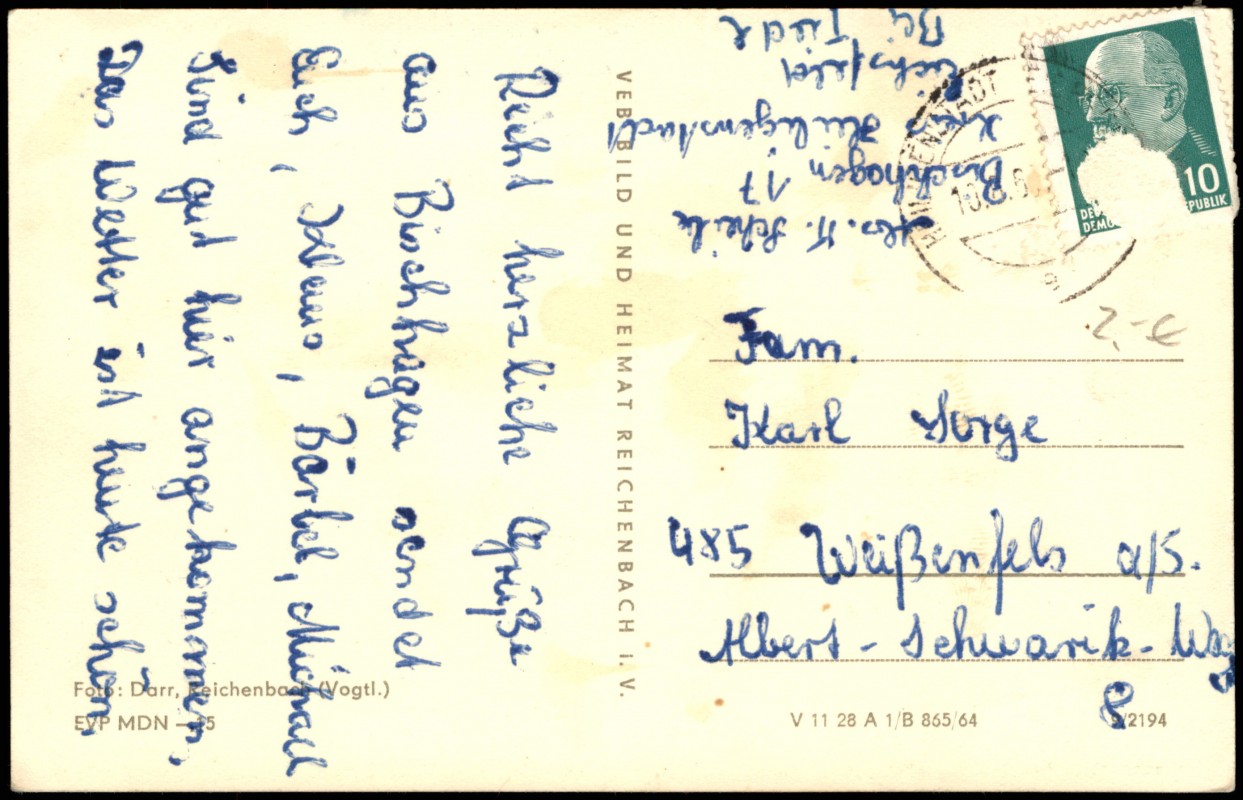 Recht herzliche Grüße
aus Bischhagen sendet
Euch, Klaus, Bärbel, Michael
Sind gut hier angekommen,
Das Wetter ist heute schön,
Foto: Darr, Reichenbach (Vogtl.)
EVP MDN —.15
VEB BILD UND HEIMAT REICHENBACH I. V.
Abs. K. Scheile
Bischhagen 17
Kreis Heiligenstadt
Eichsfeld
Bei
HEILIGENSTADT
10.8.6
10
DEUTSCHE
DEMO REPUBLIK
2,-€
Fam.
Karl Sorge
485 Weißenfels a/S.
Albert-Schwarik-Weg
8
V 11 28 A 1/B 865/64 2194